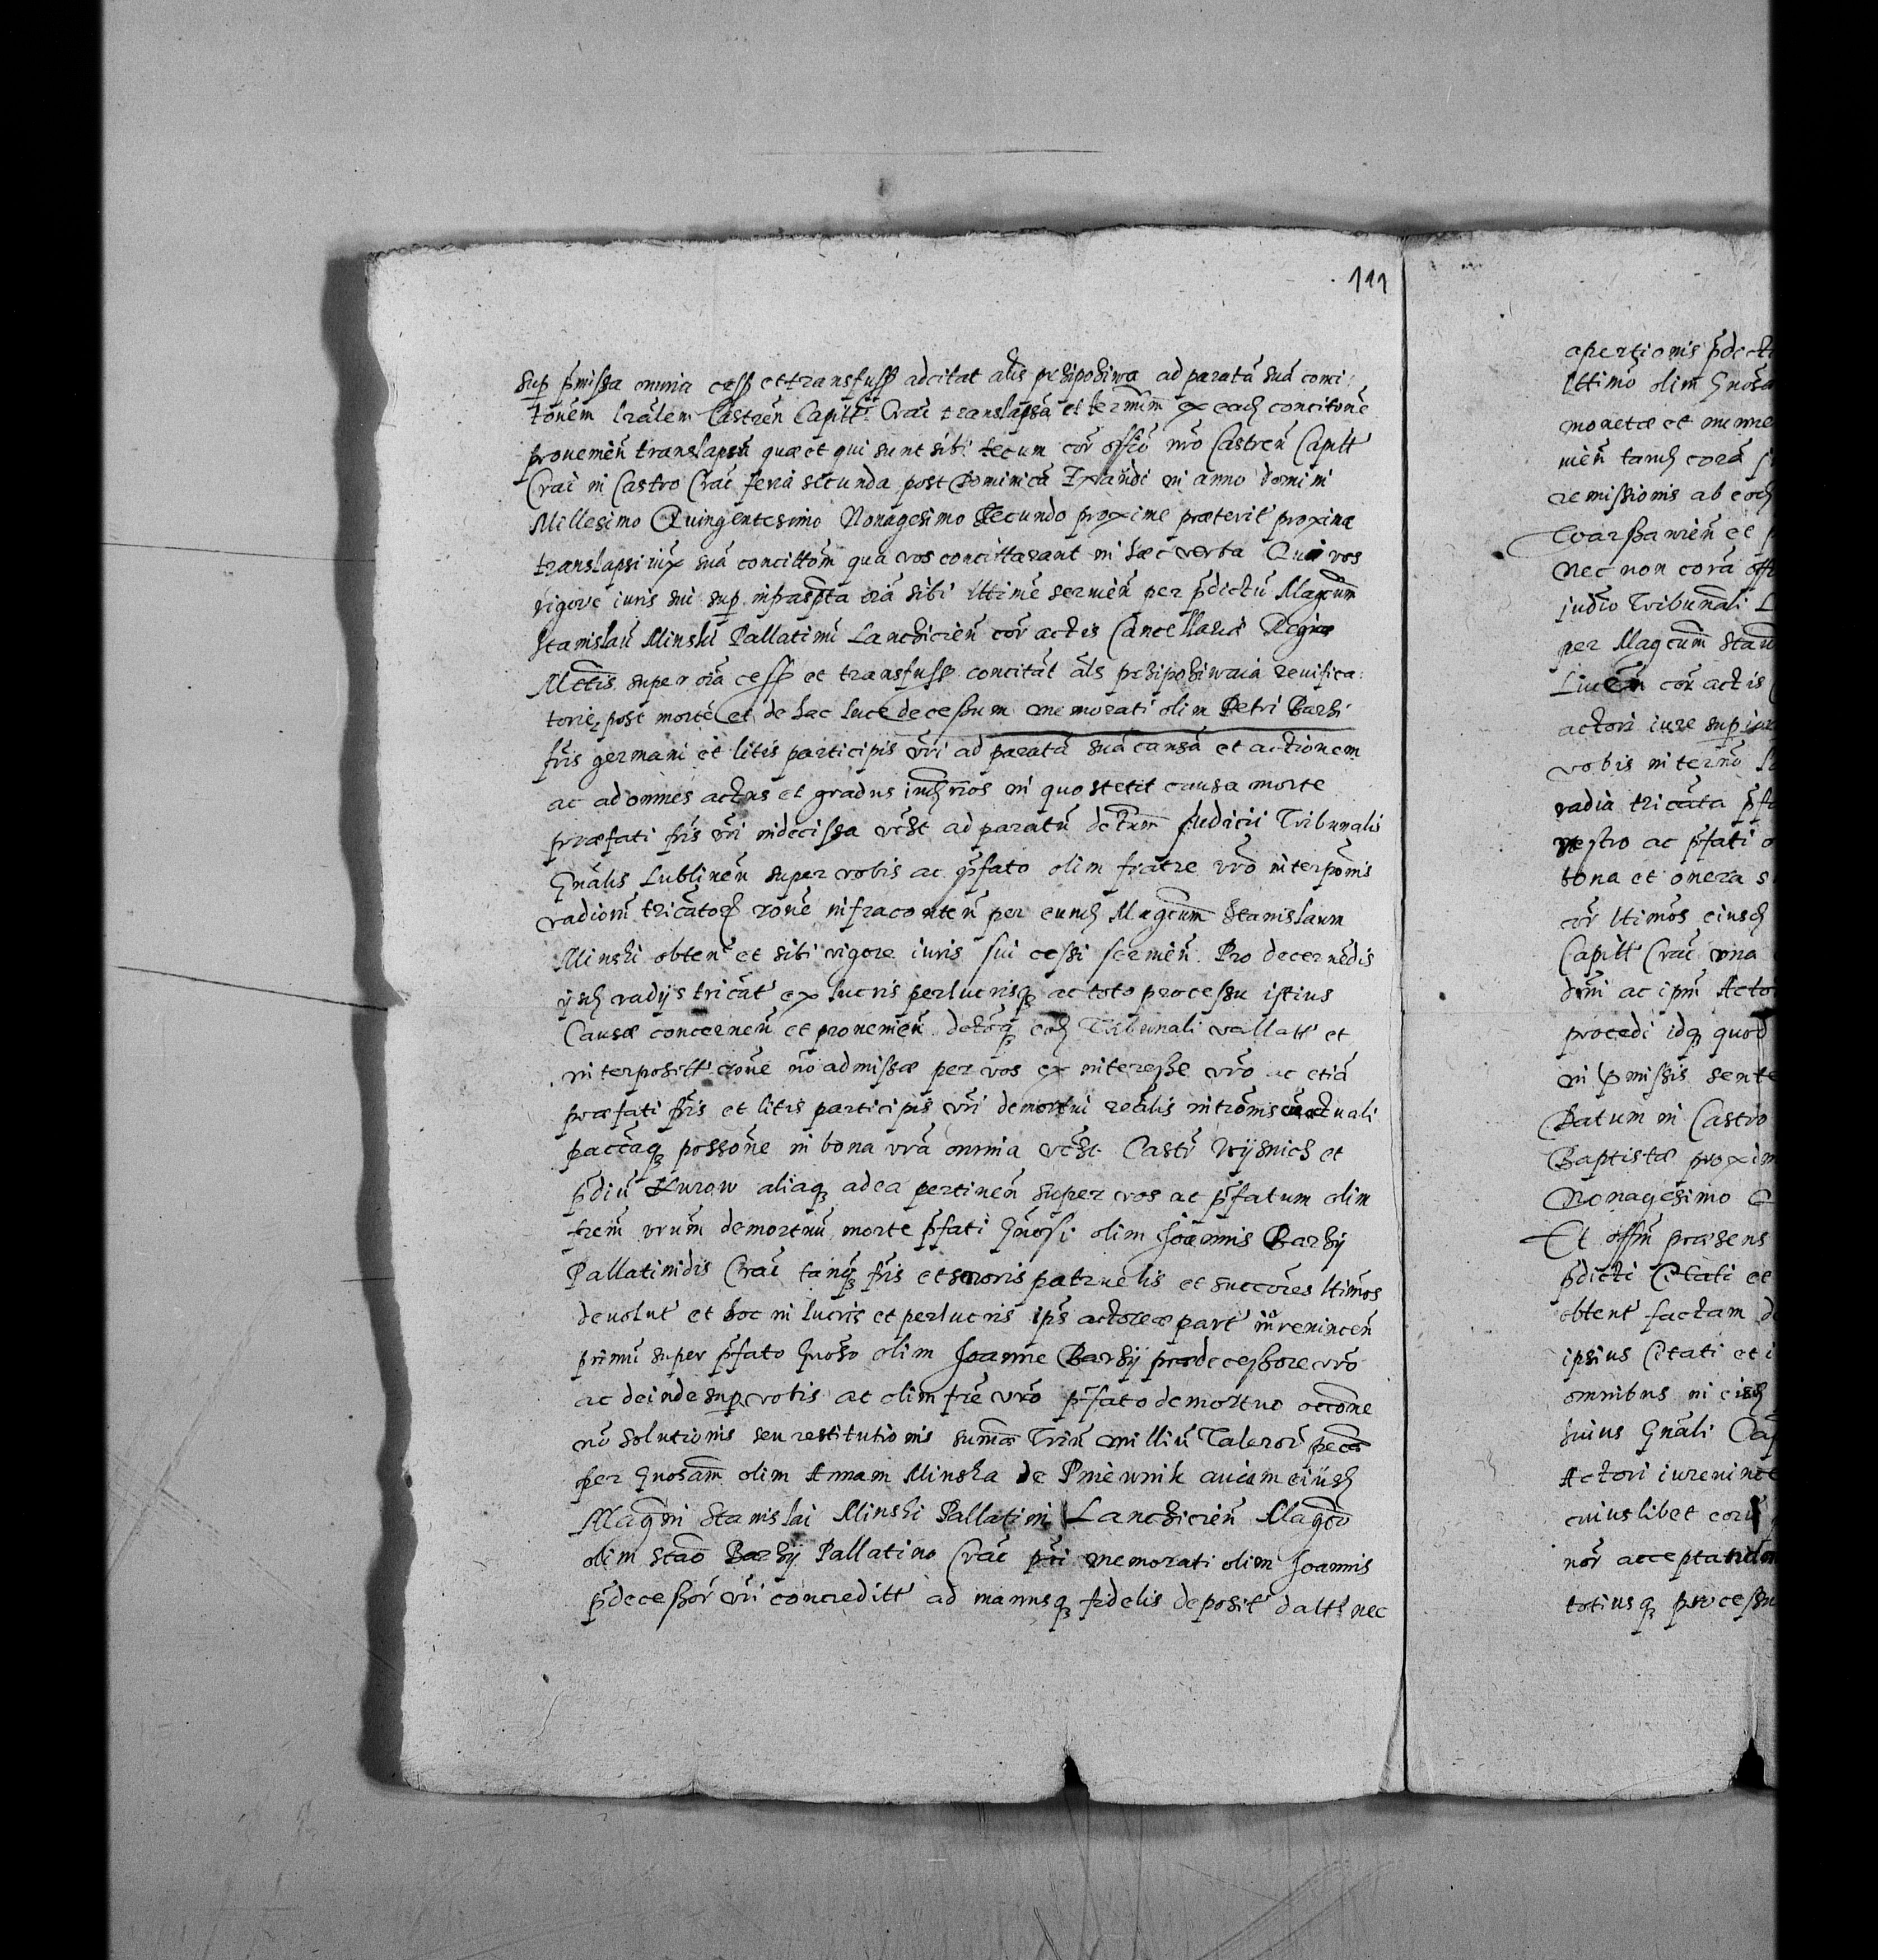 111
sup p̄missa omnia cess et transfuss adcitat als prziposiwa ad paratā suā conci:
tōnem lrālem Castren̄ Capitt Crac̄ translapsā et termin̄ ex eadē concitōne
provenien̄ translapsū quæ et qui sunt sibi tecum cor̄ offō nr̄o Castren̄ Capitt
Crac̄ in Castro Crac̄ feria secunda post Dominicā Exaudi in anno domini
Millesimo Quingentesimo Nonagesimo Secundo proxime præterit proxime
translapsi iux suā concittōm qua vos concittarant in hæc verba Quia vos
vigore iuris sui sup infrasc̄pta oīa sibi lttime servien̄ per p̄dictū Magcum̄
Stanislaū Minski Pallatinū Lanchicien̄ cor̄ actis Cancellariæ Regiæ
Mctis super oīa cess et transfuss concitāt als przipoziwaia revifica:
toriē post mortē et de hac luce decessum memorati olim Petri Barzi
fr̄is germani et litis participis vr̄i ad paratā suā causā et actionem
ac ad omnes actus et gradus in quo stetit causa morte
præfati fr̄is vr̄i indecissa vc̄zt ad paratū detum̄ Judicii Tribunalis
Gnālis Lublinen̄ super vobis ac p̄fato olim fratre vr̄o interpōnis
vadiorū tricātorꝝ rōne infraconten̄ per eundē Magcum̄ Stanislaum
Minski obten̄t et sibi vigore iuris sui cessi servien̄. Pro decernēdis
ijsdē vadijs tricāt ex lucris perlucrisqꝫ ac toto processu istius
Causæ concernen̄ et provenien̄ detōqꝫ eodē Tribunali vallatt et
interpositt rōne nō admissæ per vos ex interesse vr̄o ac etiā
præfati fr̄is et litis participis vr̄i demortui reālis intrōmis actuali
paccāqꝫ possōne in bona vr̄a omnia vc̄zt Castr̄ Wijsnicz et
p̄diū Kurow aliaqꝫ ad ea pertinen̄ super vos ac p̄fatum olim
frem̄ vrum̄ demortuū morte p̄fati Gnosi olim Joannis Barzij
Pallatinidis Crac̄ tanqꝫ fr̄is et sororis patruelis et succōres lttimos
devolut et hoc in lucris et perlucris ips̄ actoreæ part in revincen̄
primū super p̄fato Gnoso olim Joanne Barzij prædecessore vr̄o
ac deinde sup vobis ac olim frē vr̄o p̄fato demortuo occōne
nō solutionis seu restitutionis summæ Triū milliū Talerorū pecca
per Gnosam̄ olim Annam Minska de Pniewnik aviam eiusdē
Magci Stanislai Minski Pallatini Lanchicien̄ Magco
olim Stāo Barzij Pallatino Crac̄ pr̄i memorati olim Joannis
p̄decessōr vr̄i concreditt ad manusqꝫ fidelis deposit datt nec
apertionis p̄dct
lttimō olim Gnosa
monetæ et
nien̄ tamqꝫ corā
remissionis ab eodē
Warssawien̄ et
Nec non corā off
judīo Tribunāli L
per Magcum̄ Stan
cor̄ actis
actori iure sup
vobis in termō
vadia tricāta p̄f
vestro ac p̄fati o
bona et onera s
cor̄ lttimos eiusdē
Capitt Crac̄ una
dm̄ni ac ipm̄ Acto
procedi idqꝫ quod
in p̄missis sente
Datum in Castro
Baptistæ proxim
Nonagesimo
Et offm̄ præsens
p̄dicti Citati et
obtent factam d
ipsius Citati et i
omnibus in eisdē
huius Gnāli Cap
Actori iurevince
cuiuslibet eorū
nōr acceptand
totiusqꝫ processu